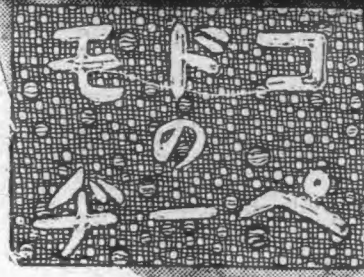 コドモ
の
ペーヂ